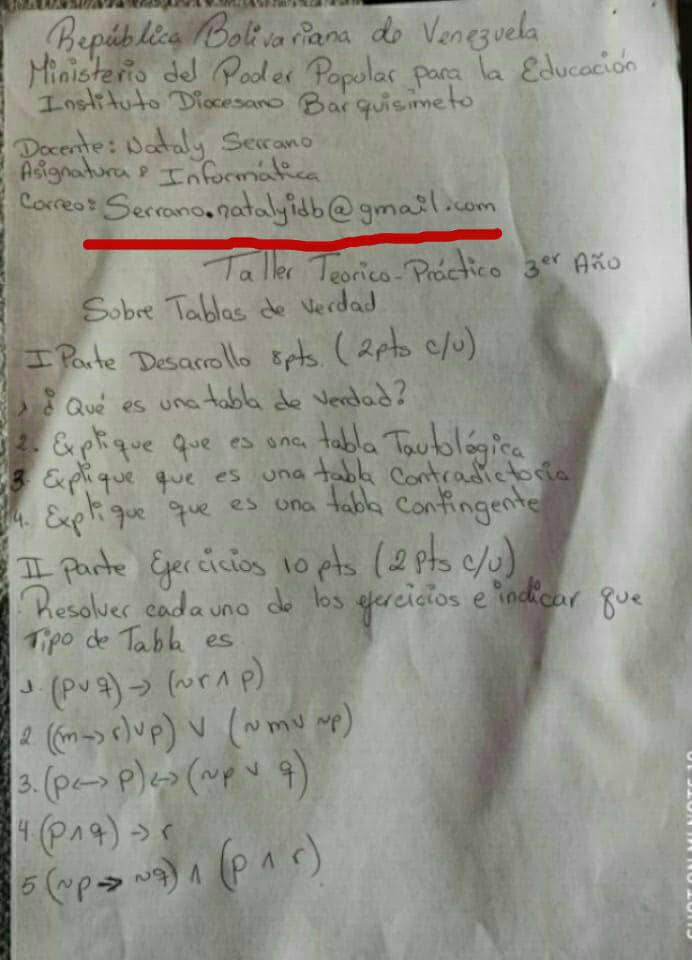 República Bolivariana de Venezuela
Ministerio del Poder Popular para la Educación
Instituto Diocesano Barquisimeto
Docente: Nataly Serrano
Asignatura: Informática
Correo: Serrano.natalyidb@gmail.com
Taller Teorico-Práctico 3er Año
Sobre Tablas de Verdad
I Parte Desarrollo 8pts. (2pts c/u)
1. ¿Qué es una tabla de verdad?
2. Explique que es una tabla Tautológica
3. Explique que es una tabla Contradictoria
4. Explique que es una tabla Contingente
II Parte Ejercicios 10 pts (2 pts c/u)
Resolver cada uno de los ejercicios e indicar que
Tipo de Tabla es
1. (p∨q) → (~r ∧ p)
2 ((m→r)∨p) ∨ (~m∨ ~p)
3. (p↔p)↔(~p ∨ q)
4. (p∧q) → r
5 (~p→ ~q) ∧ (p ∧ r)